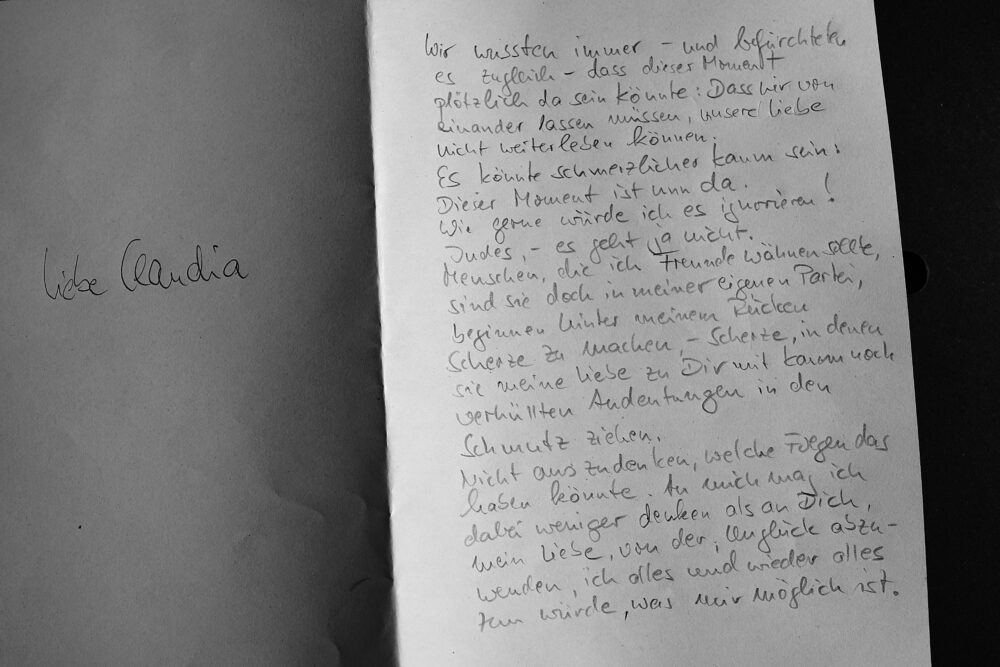 liebe Claudia
Wir wussten immer – und befürchteten
es zugleich – dass dieser Moment
plötzlich da sein könnte: Dass wir von
einander lassen müssen, unsere Liebe
nicht weiterleben können.
Es könnte schmerzlicher kaum sein:
Dieser Moment ist nun da.
Wie gerne würde ich es ignorieren!
Indes, – es geht ja nicht.
Menschen, die ich Freunde wähnen sollte,
sind sie doch in meiner eigenen Partei,
beginnen hinter meinem Rücken
Scherze zu machen, – Scherze, in denen
sie meine Liebe zu Dir mit kaum noch
verhüllten Andeutungen in den
Schmutz ziehen.
Nicht auszudenken, welche Folgen das
haben könnte. An mich mag ich
dabei weniger denken als an Dich,
mein Liebe, von der, Unglück abzu-
wenden, ich alles und wieder alles
tun würde, was mir möglich ist.